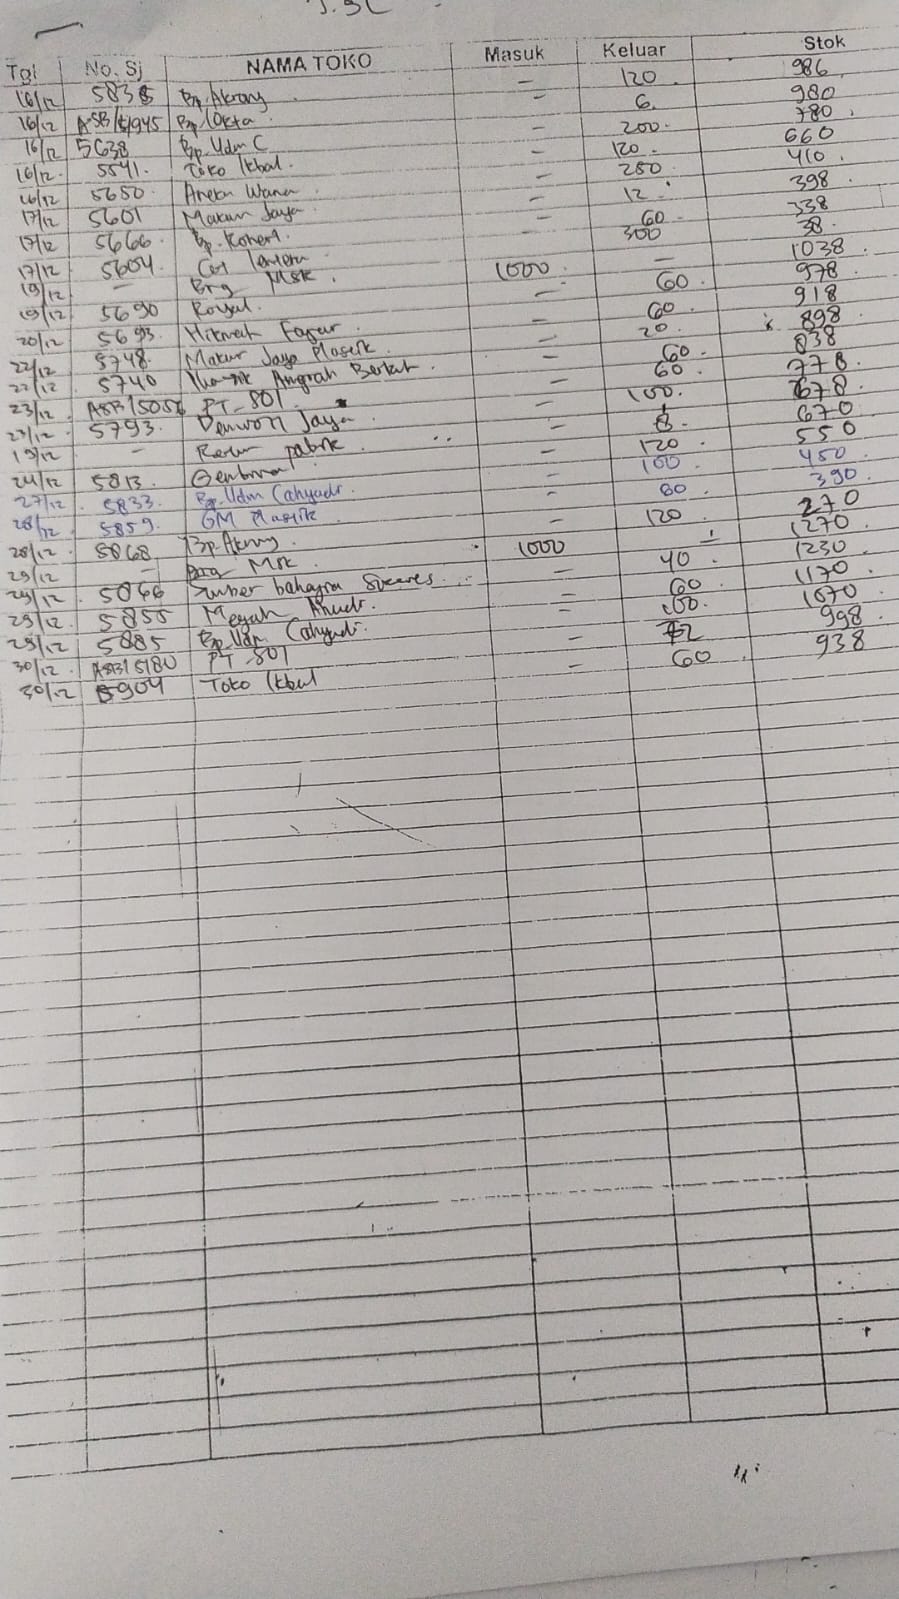 Tgl No. Sj NAMA TOKO Masuk Keluar Stok
16/12 5835 Bp. Akrong - 120 986
16/12 ASB/4945 Bp. Okta - 6 980
16/12 5638 Bp. Udin C - 200 780
16/12 5541 Toko Ikbal - 120 660
16/12 5650 Aneka Warna - 250 410
17/12 5601 Makmur Jaya - 12 398
17/12 5666 Bp. - 60 338
17/12 5604 - 300 38
19/12 - Brg Msk 1000 - 1038
19/12 5690 Royal - 60 978
20/12 5693 Hikmah Fajar - 60 918
22/12 5748 Makmur Jaya Plastik - 20 898
22/12 5740 Anugrah Berkah - 60 838
23/12 ASB/5056 PT-801 - 60 778
23/12 5793 Jaya - 100 678
19/12 - Retur pabrik - 8 670
24/12 5813 - 120 550
27/12 5833 Bp. Udin Cahyadi - 100 450
28/12 5859 GM Plastik 60 390
28/12 5868 Bp. Akrong - 120 270
29/12 - Brg Msk 1000 - 1270
29/12 5866 Sumber bahagia Succes - 40 1230
29/12 5855 Megah - 60 1170
29/12 5885 Bp. Udin Cahyadi - 100 1070
30/12 ASB/5180 PT-801 - 72 998
30/12 5904 Toko Ikbal - 60 938